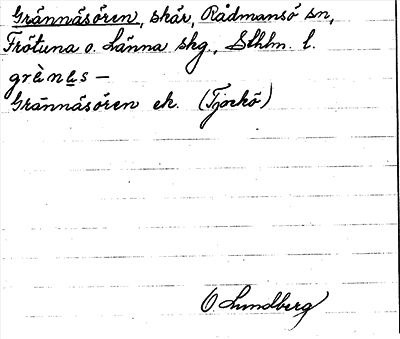 Grännäsören, skär, Rådmansö sn,
Frötuna o. Länna skg., Sthlm. l.
grènes –
Grännäsören ek. (Tjockö)
O. Lundberg